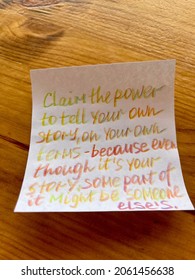 Claim the power
to tell your own
story, on your own
terms - because even
though it's your
story, some part of
it Might be someone
elses.
shutterstock.com · 2061456638